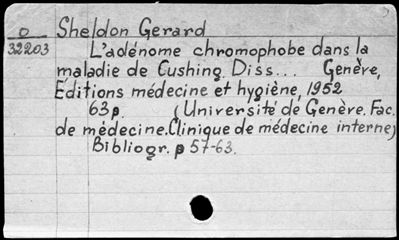 O Sheldon Gerard
32203 L'adénome chromophobe dans la
maladie de Cushing. Diss... Genève,
Editions médecine et hygiène, 1952
63p. (Université de Genève. Fac.
de médecine. Clinique de médecine interne)
Bibliogr. p 57-63.